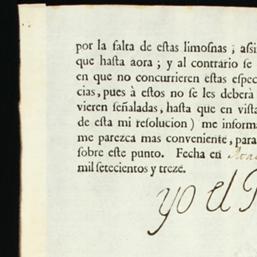 por la falta de eſtas limoſnas; aſsi
que haſta aora; y al contrario ſe
en que no concurrieren eſtas eſpec
cias, pues à eſtos no ſe les deberà
vieren ſeñaladas, haſta que en viſta
de eſta mi reſolucion) me informa
me parezca mas conveniente, para
ſobre eſte punto. Fecha en
mil ſetecientos y treze.
yo el